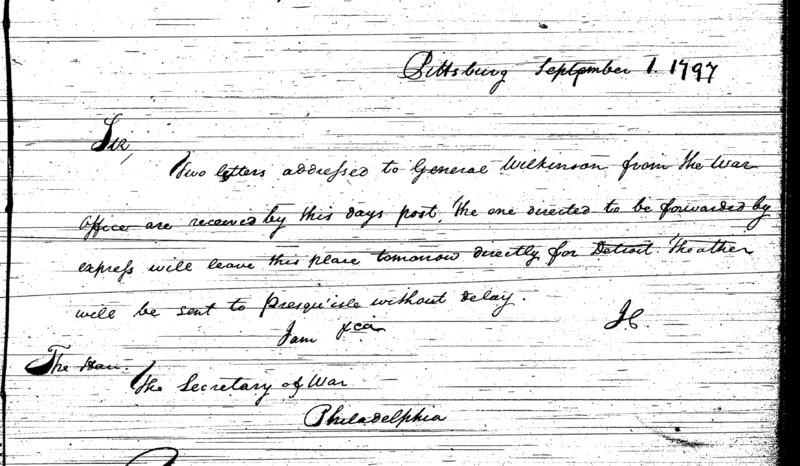 Pittsburg September 1. 1797
Sir,
Two letters addressed to General Wilkinson from the War
office are received by this days post, the one directed to be forwarded by
express will leave this place tomorrow directly for Detroit. The other
will be sent to Presqu'isle without delay.
I am &ca
The Hon.
The Secretary of War
Philadelphia